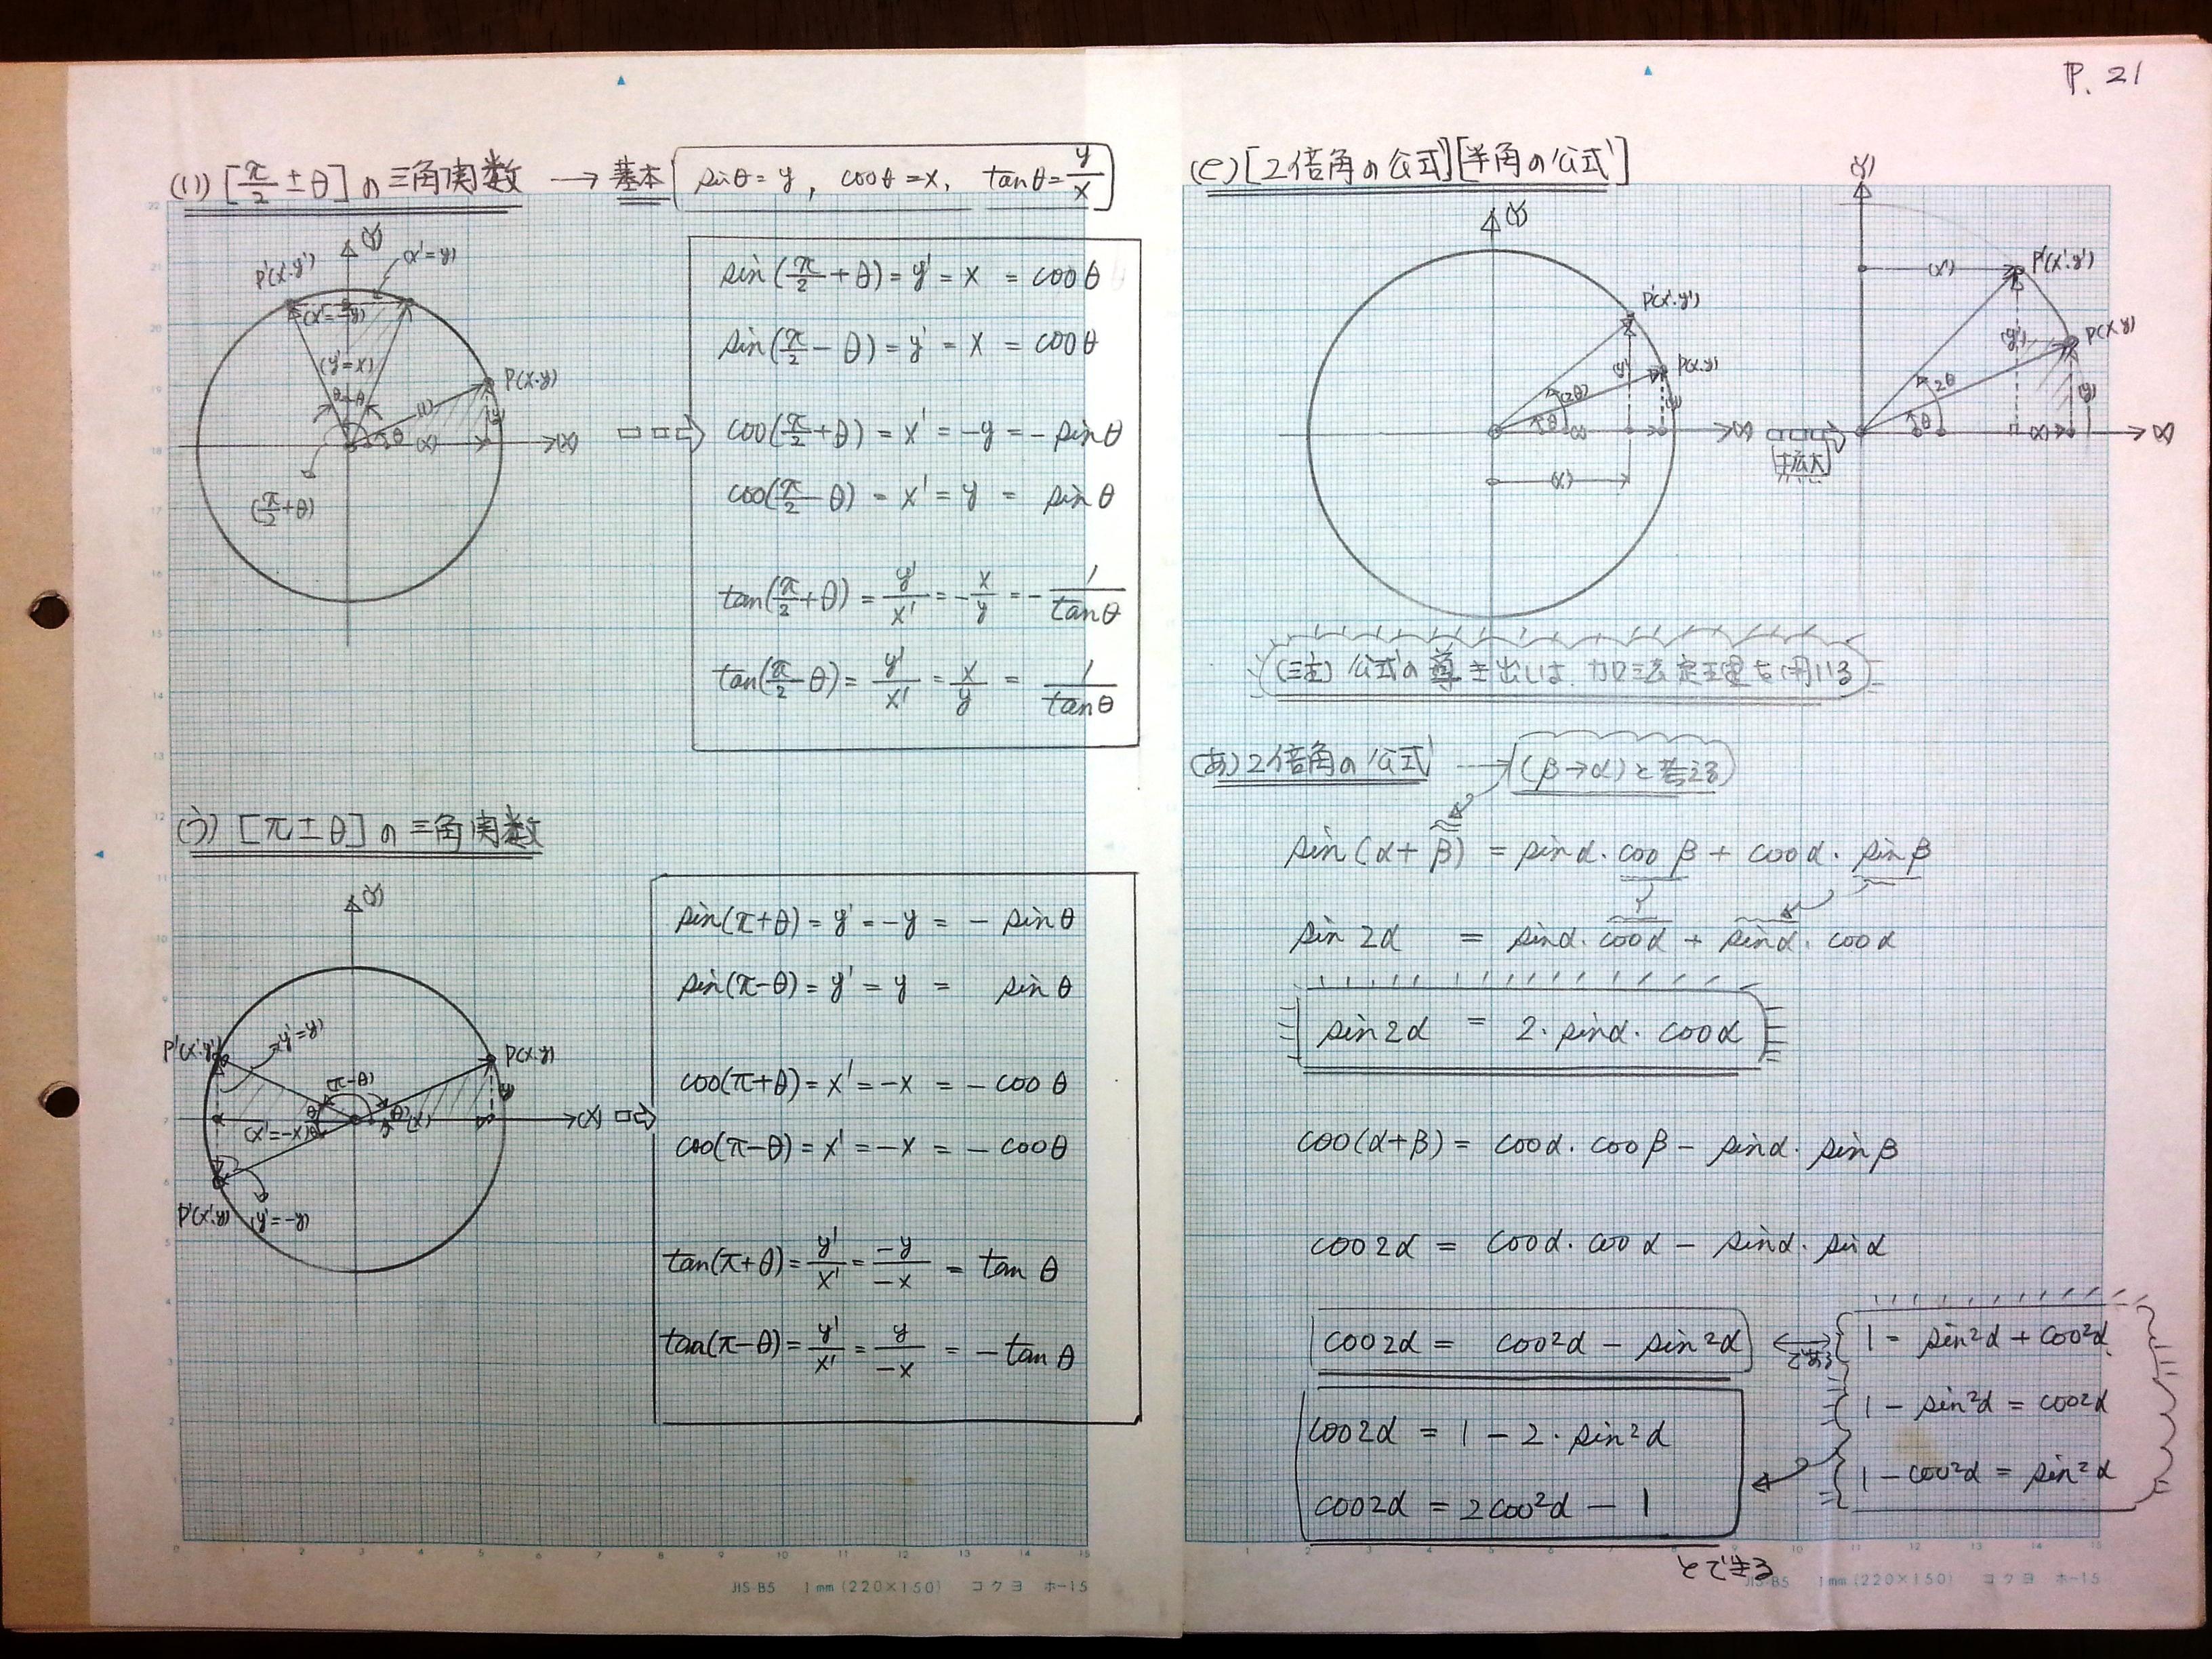 P. 21
(い) [π/2 ± θ] の 三角関数 → 基本 [sinθ = y, cosθ = x, tanθ = y/x]
(Y)
P'(x'·y')
(x'=y)
(x'=-y)
(y'=x)
θ θ
P(x·y)
(1)
(y)
θ
(x)
(X)
(π/2+θ)
sin(π/2 + θ) = y' = x = cosθ
sin(π/2 - θ) = y' = x = cosθ
cos(π/2 + θ) = x' = -y = - sinθ
cos(π/2 - θ) = x' = y = sinθ
tan(π/2 + θ) = y'/x' = - x/y = - 1/tanθ
tan(π/2 - θ) = y'/x' = x/y = 1/tanθ
(う) [π ± θ] の 三角関数
(Y)
(y'=y)
P'(x'·y')
P(x·y)
(π-θ)
(y)
θ
θ
(x)
(X)
(x'=-x)
θ
P'(x'·y')
(y'=-y)
sin(π+θ) = y' = -y = - sinθ
sin(π-θ) = y' = y = sinθ
cos(π+θ) = x' = -x = - cosθ
cos(π-θ) = x' = -x = - cosθ
tan(π+θ) = y'/x' = -y/-x = tanθ
tan(π-θ) = y'/x' = y/-x = - tanθ
JIS-B5 1mm (220×150) コクヨ ホ-15
(え) [2倍角の公式] [半角の公式]
(Y)
P'(x'·y')
P(x·y)
(y')
(2θ)
θ
(y)
(x)
(X)
(x')
[拡大]
(Y)
(x')
P'(x'·y')
P(x·y)
(y')
2θ
θ
(y)
(x)
(X)
(注) 公式の導き出しは、加法定理を用いる
(あ) 2倍角の公式 → (β→α)と考える
sin(α+β) = sinα·cosβ + cosα·sinβ
sin2α = sinα·cosα + sinα·cosα
sin2α = 2·sinα·cosα
cos(α+β) = cosα·cosβ - sinα·sinβ
cos2α = cosα·cosα - sinα·sinα
cos2α = cos²α - sin²α
である
1 = sin²α + cos²α
1 - sin²α = cos²α
1 - cos²α = sin²α
cos2α = 1 - 2·sin²α
cos2α = 2cos²α - 1
とできる
JIS-B5 1mm (220×150) コクヨ ホ-15